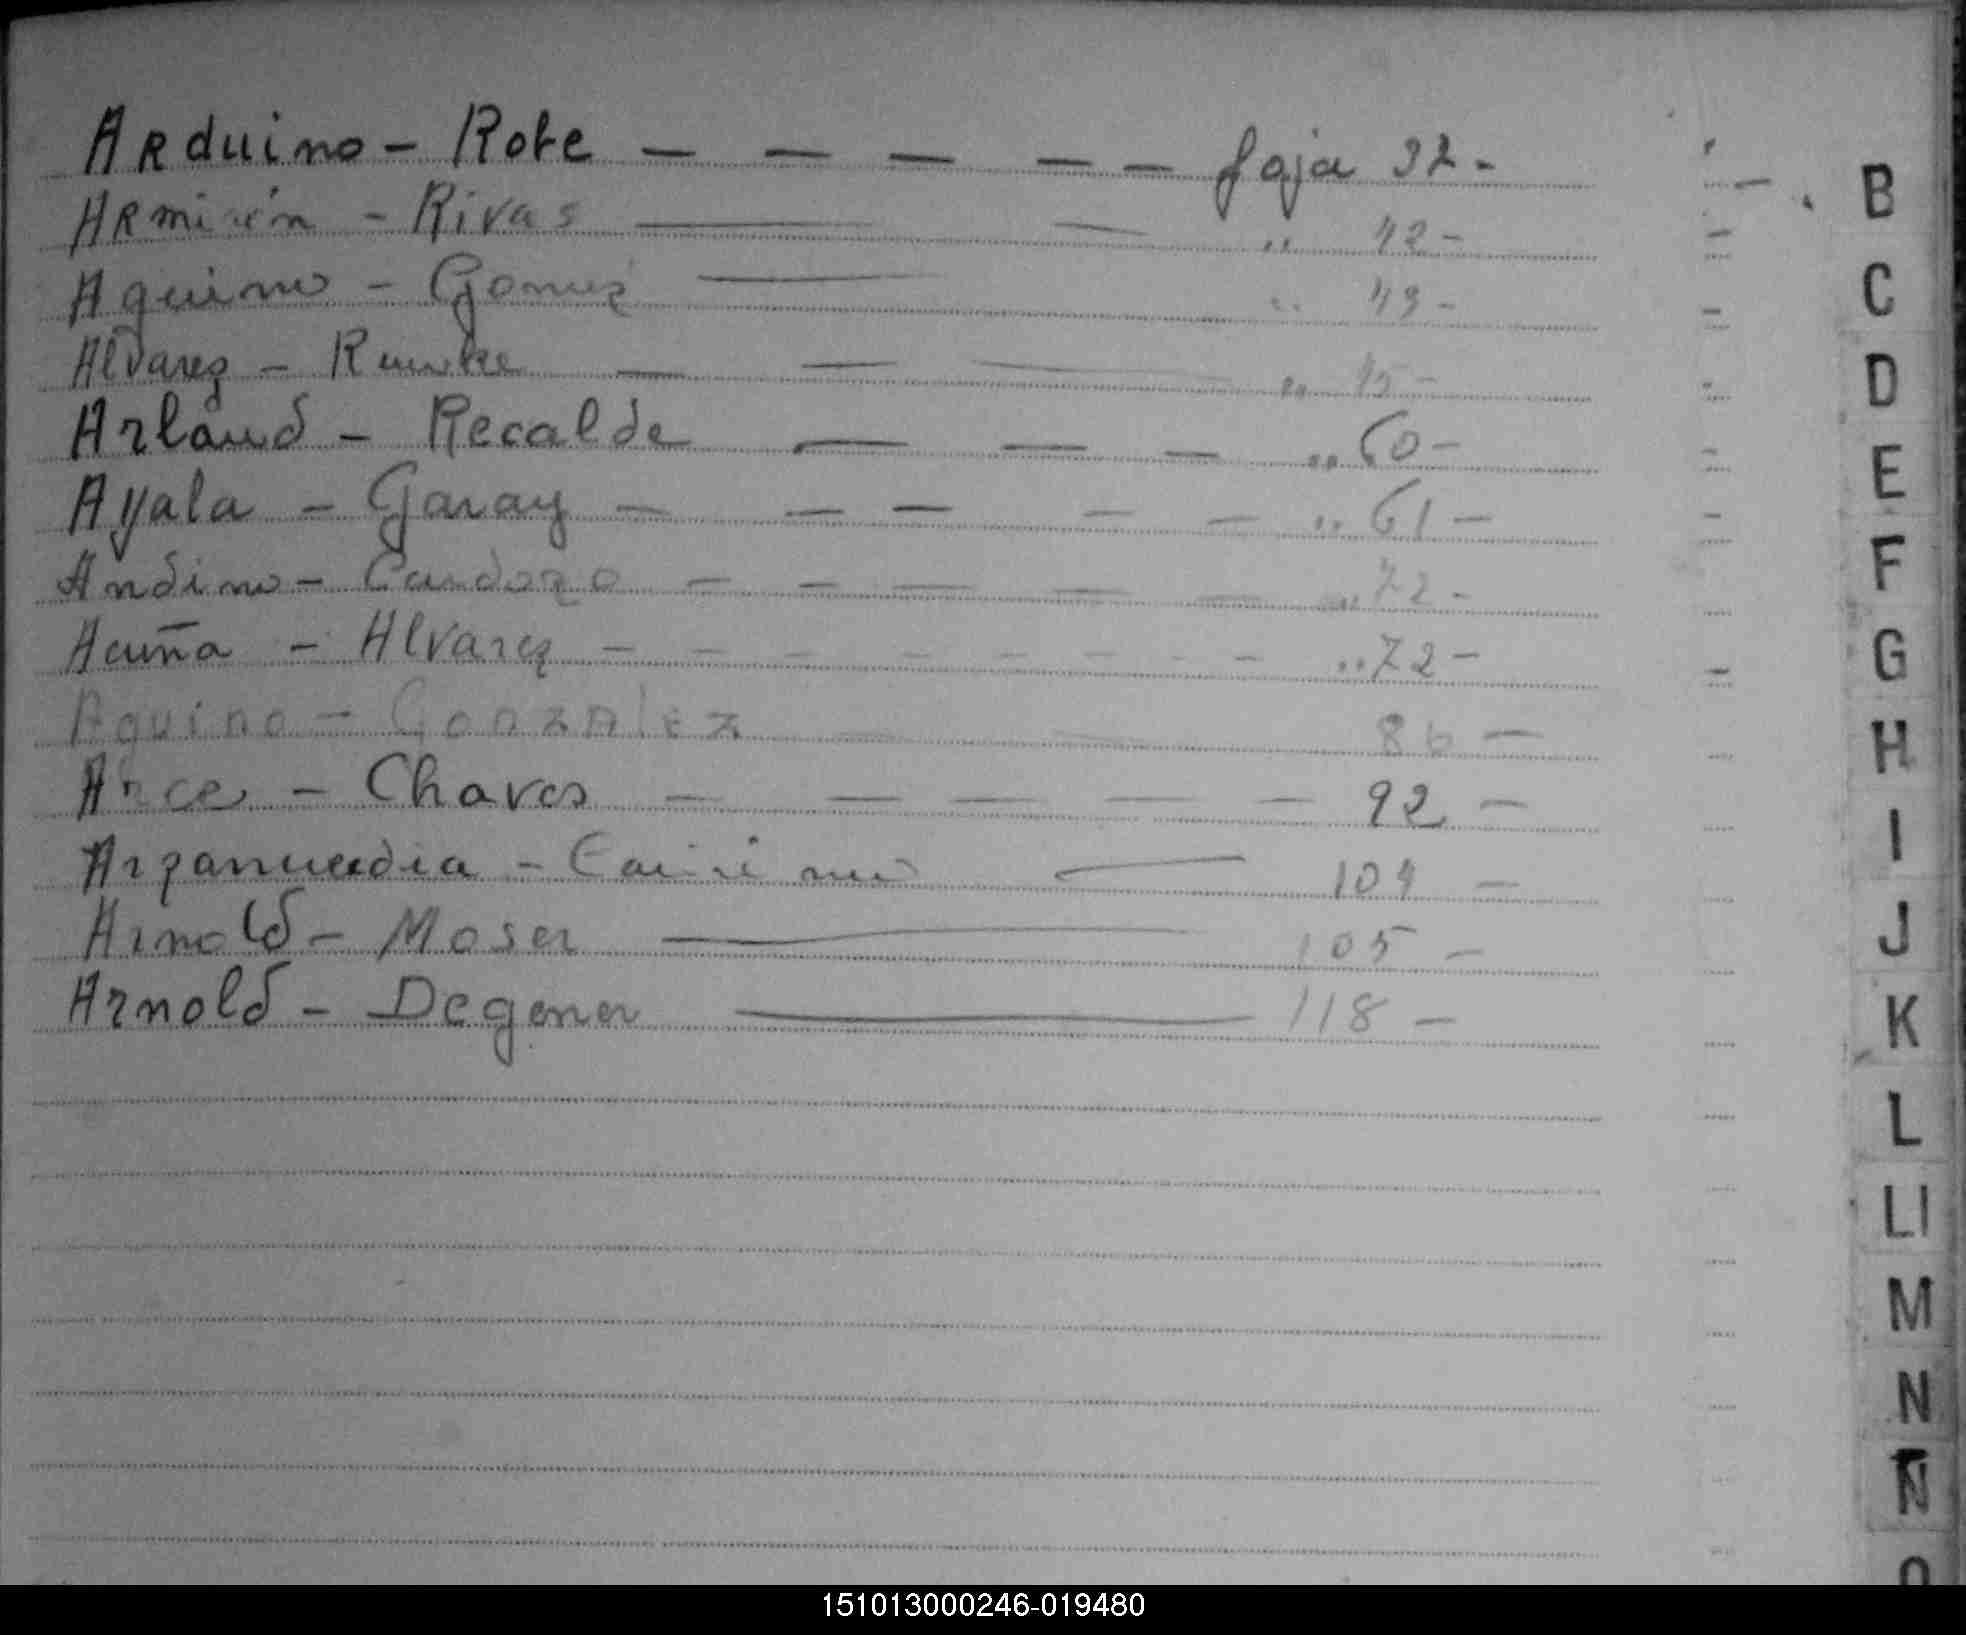 Arduino - Rote - - - - - foja 32 -
Armirén - Rivas - - " 42 -
Aquino - Gomez - " 49 -
Alvarez - - - - "
Arlaud - Recalde - - - " 60 -
Ayala - Garay - - - - - " 61 -
Andino - Cardozo - - - - - " 72 -
Acuña - Alvarez - - - - - - - - " 72 -
Aquino - Gonzalez - - 86 -
Arce - Chaves - - - - - 92 -
Arzamendia - - 104 -
Arnold - Moser - 105 -
Arnold - Degener - 118 -
B
C
D
E
F
G
H
I
J
K
L
Ll
M
N
Ñ
O
151013000246-019480